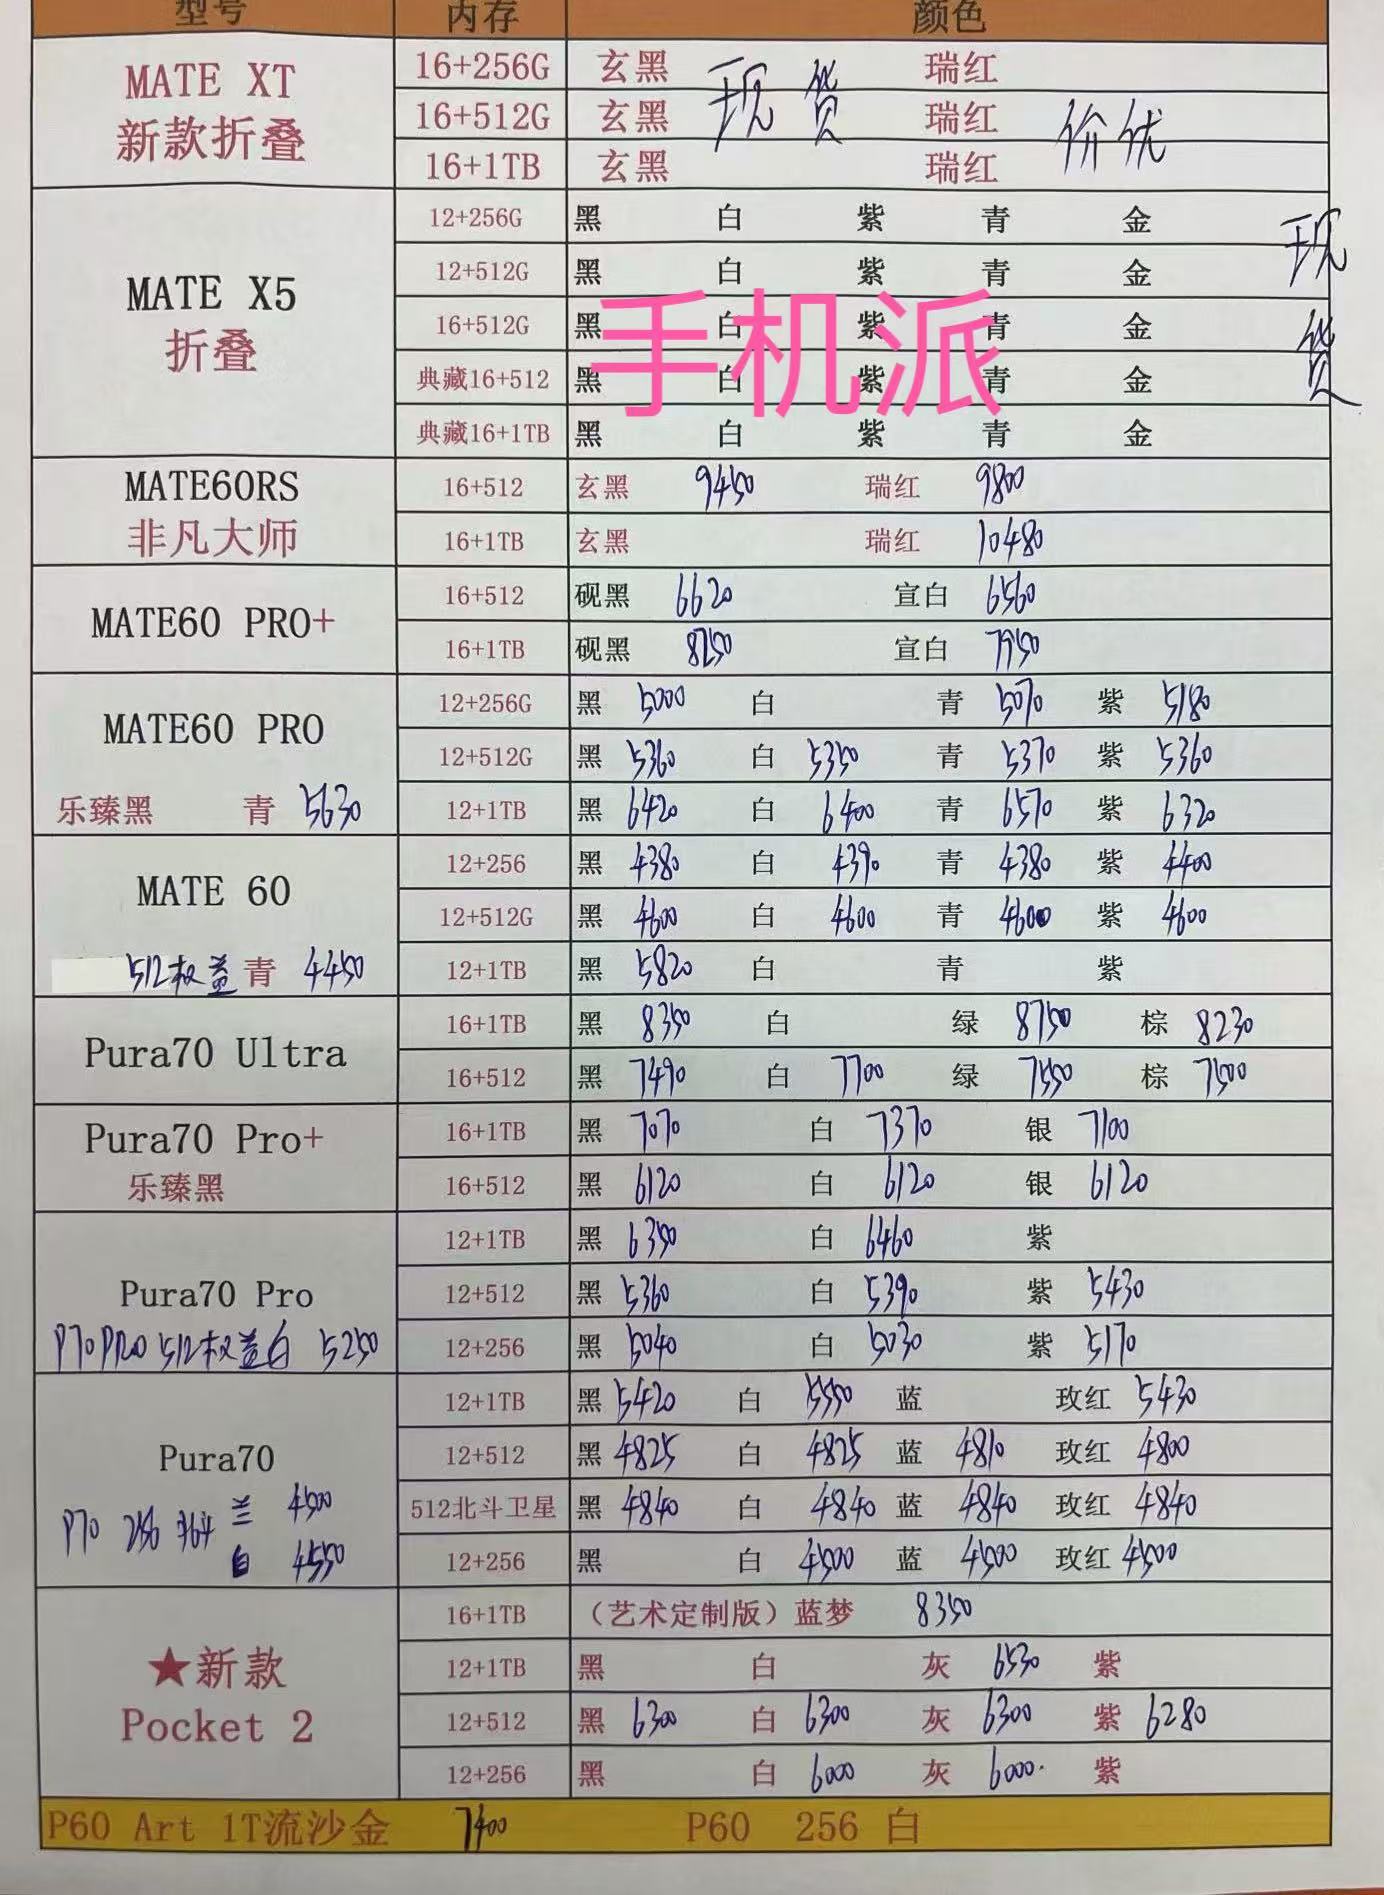 型号 内存 颜色
MATE XT 16+256G 玄黑 现货 瑞红
新款折叠 16+512G 玄黑 瑞红 价优
16+1TB 玄黑 瑞红
12+256G 黑 白 紫 青 金 现货
MATE X5 12+512G 黑 白 紫 青 金
折叠 16+512G 黑 白 紫 青 金
手机派
典藏16+512 黑 白 紫 青 金
典藏16+1TB 黑 白 紫 青 金
MATE60RS 16+512 玄黑 9450 瑞红 9800
非凡大师 16+1TB 玄黑 瑞红 10480
MATE60 PRO+ 16+512 砚黑 6620 宣白 6560
16+1TB 砚黑 8250 宣白 7950
MATE60 PRO 12+256G 黑 5000 白 青 5070 紫 5180
12+512G 黑 5360 白 5350 青 5370 紫 5360
乐臻黑 青 5630 12+1TB 黑 6420 白 6400 青 6570 紫 6320
MATE 60 12+256 黑 4380 白 4390 青 4380 紫 4400
12+512G 黑 4600 白 4600 青 4600 紫 4600
512权益 青 4450 12+1TB 黑 5820 白 青 紫
Pura70 Ultra 16+1TB 黑 8350 白 绿 8750 棕 8230
16+512 黑 7490 白 7700 绿 7550 棕 7500
Pura70 Pro+ 16+1TB 黑 7070 白 7370 银 7100
乐臻黑 16+512 黑 6120 白 6120 银 6120
12+1TB 黑 6350 白 6460 紫
Pura70 Pro 12+512 黑 5360 白 5390 紫 5430
P70PRO 512权益白 5250 12+256 黑 5040 白 5030 紫 5170
12+1TB 黑 5420 白 5550 蓝 玫红 5430
Pura70 12+512 黑 4825 白 4825 蓝 4810 玫红 4800
P70 256 兰 4500 512北斗卫星 黑 4840 白 4840 蓝 4840 玫红 4840
白 4550 12+256 黑 白 4500 蓝 4500 玫红 4500
16+1TB （艺术定制版）蓝梦 8350
★新款 12+1TB 黑 白 灰 6530 紫
Pocket 2 12+512 黑 6300 白 6300 灰 6300 紫 6280
12+256 黑 白 6000 灰 6000. 紫
P60 Art 1T流沙金 7400 P60 256 白